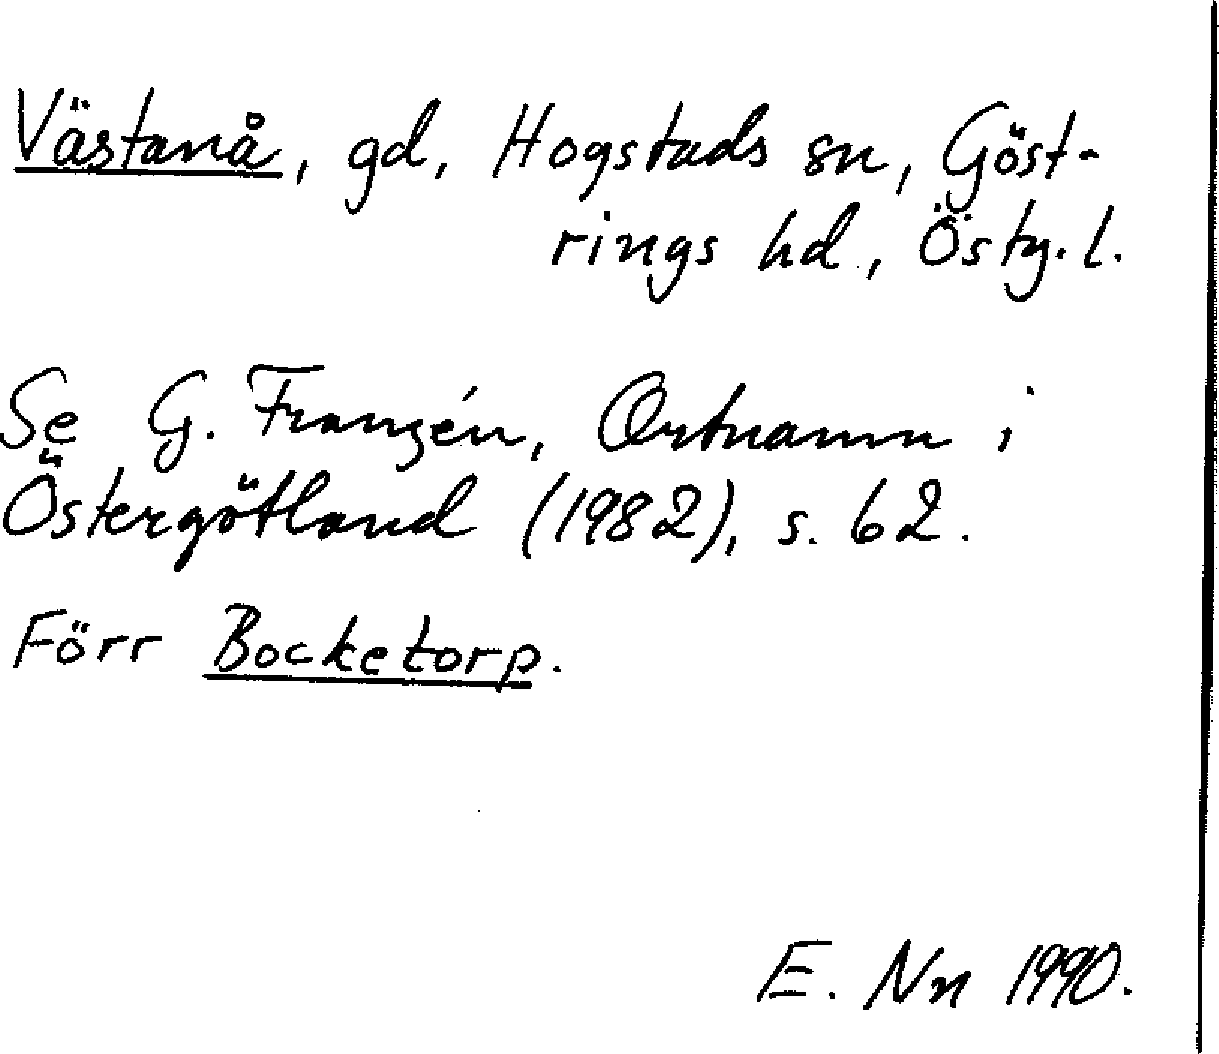 Västanå, gd, Hogstads sn, Göst-
rings hd, Östg. l.
Se G. Franzén, Ortnamn i
Östergötland (1982), s. 62.
Förr Bocketorp.
E. Nn 1990.